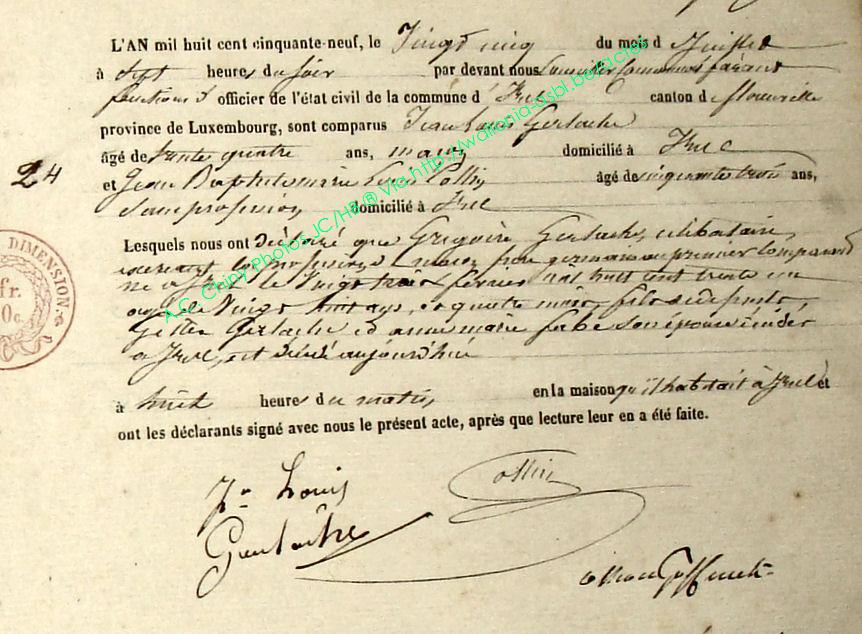 L'AN mil huit cent cinquante-neuf, le Vingt cinq du mois d Juillet
à Sept heures du soir par devant nous faisant
fonctions d' officier de l'état civil de la commune d' Izel canton d florenville
province de Luxembourg, sont comparus Jean Louis Gerlache
âgé de trente quatre ans, maçon domicilié à Izel
24
et Jean Baptiste marie Louis Collin âgé de cinquante trois ans,
Sans profession domicilié à Izel
Lesquels nous ont Déclaré que Grégoire Gerlache, célibataire,
exerçant la profession de maçon frère germain au premier Comparant
né à Izel le Vingt trois février mil huit cent trente un
agé de Vingt huit ans, et quatre mois, fils de
Gerlache et anne marie son épouse
à Izel, est décédé aujourd'hui
à huit heures du matin, en la maison qu'il habitait à Izel et
ont les déclarants signé avec nous le présent acte, après que lecture leur en a été faite.
Jn Louis
Gerlache
Collin
DIMENSION
fr.
0c.
A.C. Chiny Photos JC/HB ® Via http://wallonia-asbl.be/actes